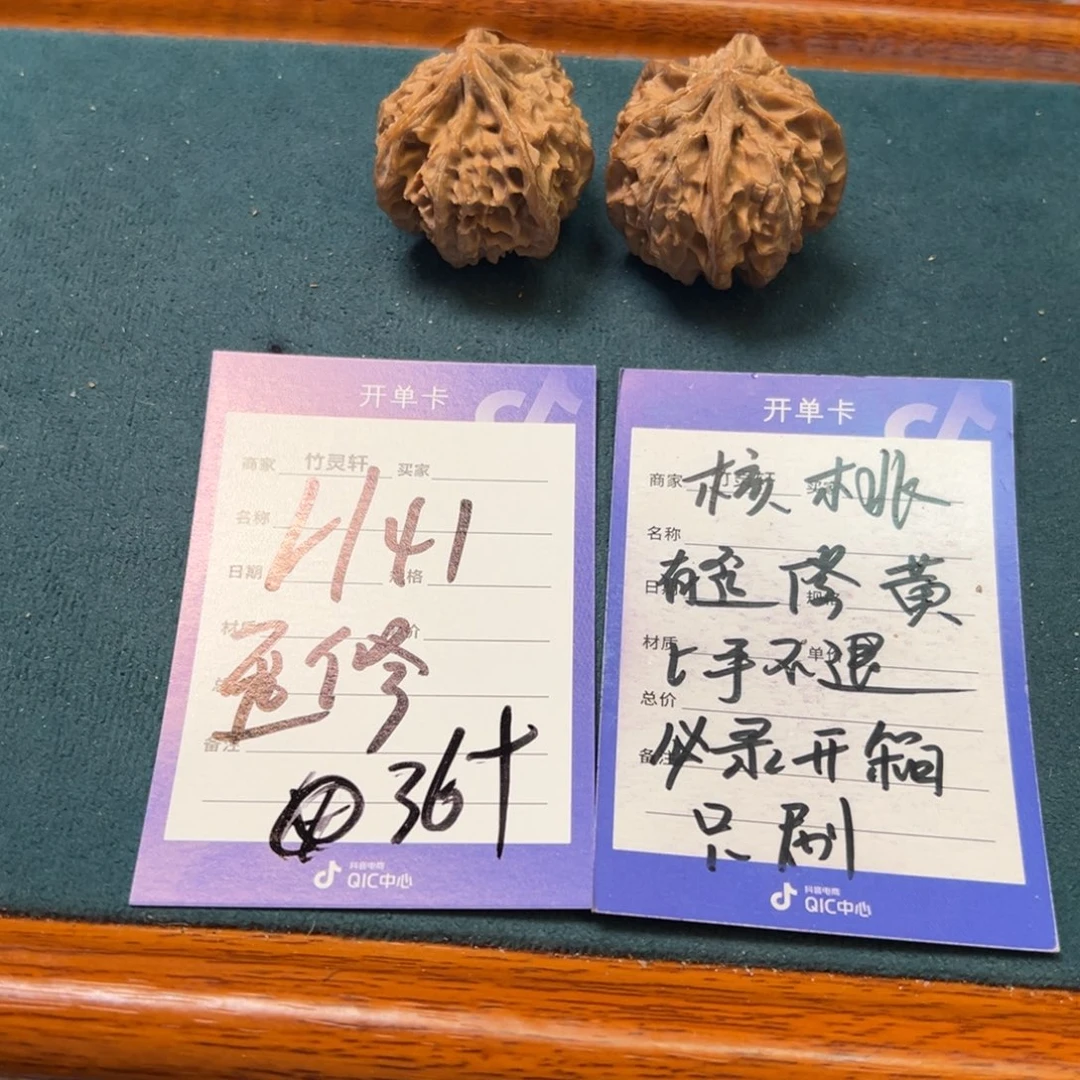 开单卡
商家 竹灵轩 买家
名称
日期 规格
材质 单价
备注
41
修
36十
抖音电商
QIC中心
开单卡
商家 竹灵轩 买家
核桃
名称
有 修 黄
日期 规格
材质 单价
上手不退
总价
备注
必录开箱
只刷
抖音电商
QIC中心